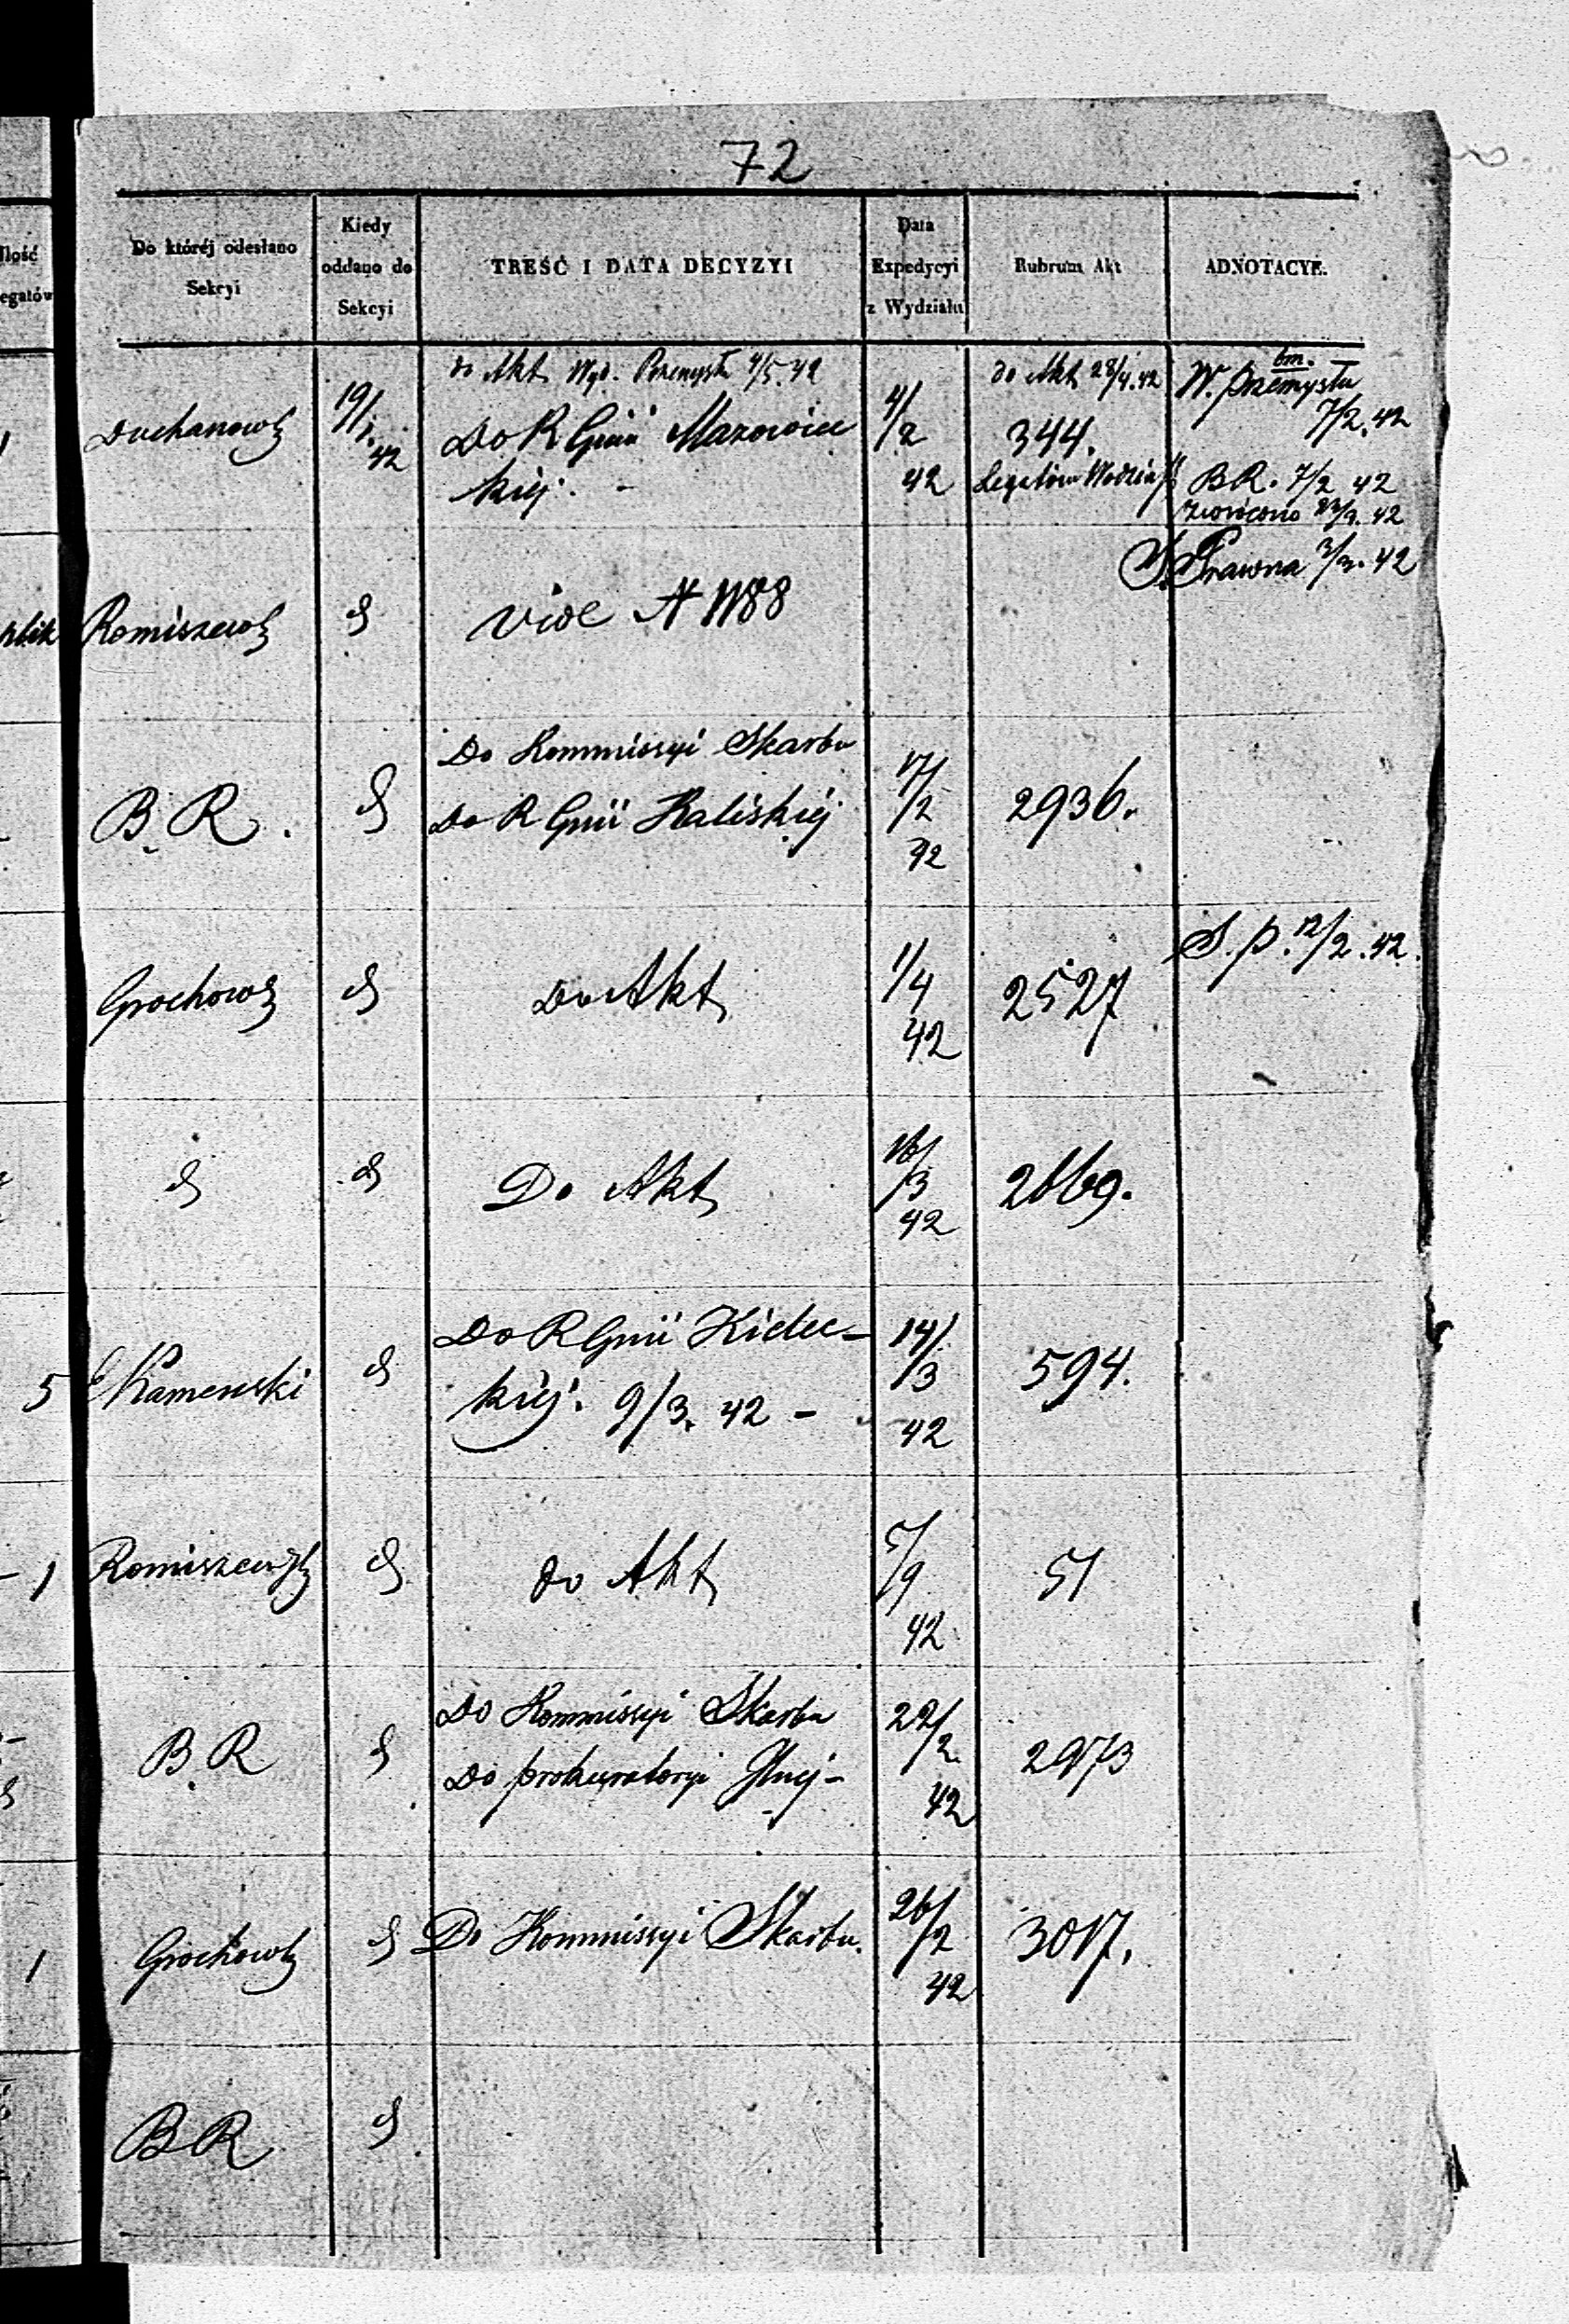 72
Ilość
egatów
Do któréj odesłano
Sekcyi
Kiedy
oddano do
Sekcyi
TREŚĆ I DATA DECYZYI
Data
Expedycyi
z Wydziału
Rubrum Akt
ADNOTACYE.
do Akt Wyd. Przemysłu 4/5.42
do Akt 28/4.42
bm.
W. Przemysłu
7/2.42
Duchanows
19/1.42
Do R Gnii Mazowiec
kiej. -
4/2
42
344.
Legatów
BR. 7/2 42
zwrócono
42
S. Prawna 3/3.42
Romiszews
d
vide N 1188
Do Kommissyi Skarbu
B. R.
d
Do R Gnii Kaliskiéj
17/2
42
2936.
S.p. 12/2.42.
Grochows
d
do Akt
1/4
42
2527
d
d
Do Akt
16/3
42
2669.
Do R Gnii Kielec-
5
Kamenski
d
kiéj. 9/3. 42 -
14/3
42
594.
1
Romiszews
d
do Akt
5/9
42
51
Do Kommissyi Skarbu
B. R
d
Do prokuratoryi Jlnéj -
22/2
42
2973
1
Grochows
d
Do Kommissyi Skarbu.
26/2
42
3017.
BR
d